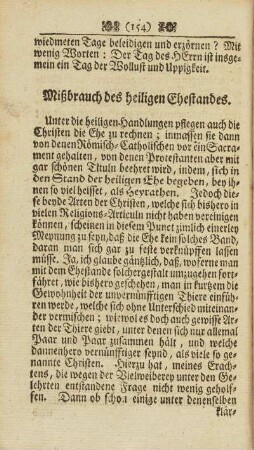 (154)
wiedmeten Tage beleidigen und erzörnen? Mit
wenig Worten: Der Tag des HErrn ist insge-
mein ein Tag der Wollust und Uppigkeit.
Mißbrauch des heiligen Ehestandes.
Unter die heiligen Handlungen pflegen auch die
Christen die Ehe zu rechnen; inmassen sie dann
von denen Römisch-Catholischen vor ein Sacra-
ment gehalten, von denen Protestanten aber mit
gar schönen Tituln beehret wird, indem, sich in
den Stand der heiligen Ehe begeben, bey ih-
nen so viel heisset, als Heyrathen. Jedoch die-
se beyde Arten der Christen, welche sich bishero in
vielen Religions-Articuln nicht haben vereinigen
können, scheinen in diesem Punct zimlich einerley
Meynung zu seyn, daß die Ehe kein solches Band,
daran man sich gar zu feste verknüpffen lassen
müsse. Ja, ich glaube gäntzlich, daß, woferne man
mit dem Ehestande solchergestalt umzugehen fort-
fähret, wie bishero geschehen, man in kurtzem die
Gewohnheit der unvernünfftigen Thiere einfüh-
ren werde, welche sich ohne Unterschied mitein-
ander vermischen; wiewol es doch auch gewisse Ar-
ten der Thiere giebt, unter denen sich nur allemal
Paar und Paar zusammen hält, und welche
dannenhero vernünfftiger seynd, als viele so ge-
nannte Christen. Hierzu hat, meines Erach-
tens, die wegen der Vielweiberey unter den Ge-
lehrten entstandene Frage nicht wenig geholf-
fen. Dann ob schon einige unter denenselben
klär-